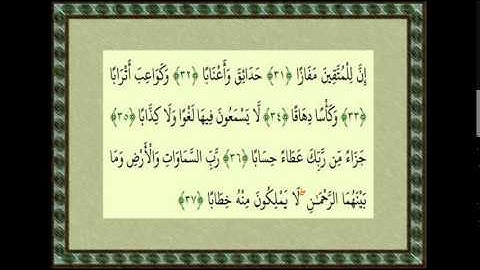 إِنَّ لِلْمُتَّقِينَ مَفَازًا ﴿٣١﴾ حَدَائِقَ وَأَعْنَابًا ﴿٣٢﴾ وَكَوَاعِبَ أَتْرَابًا
﴿٣٣﴾ وَكَأْسًا دِهَاقًا ﴿٣٤﴾ لَّا يَسْمَعُونَ فِيهَا لَغْوًا وَلَا كِذَّابًا ﴿٣٥﴾
جَزَاءً مِّن رَّبِّكَ عَطَاءً حِسَابًا ﴿٣٦﴾ رَّبِّ السَّمَاوَاتِ وَالْأَرْضِ وَمَا
بَيْنَهُمَا الرَّحْمَـٰنِ ۖ لَا يَمْلِكُونَ مِنْهُ خِطَابًا ﴿٣٧﴾